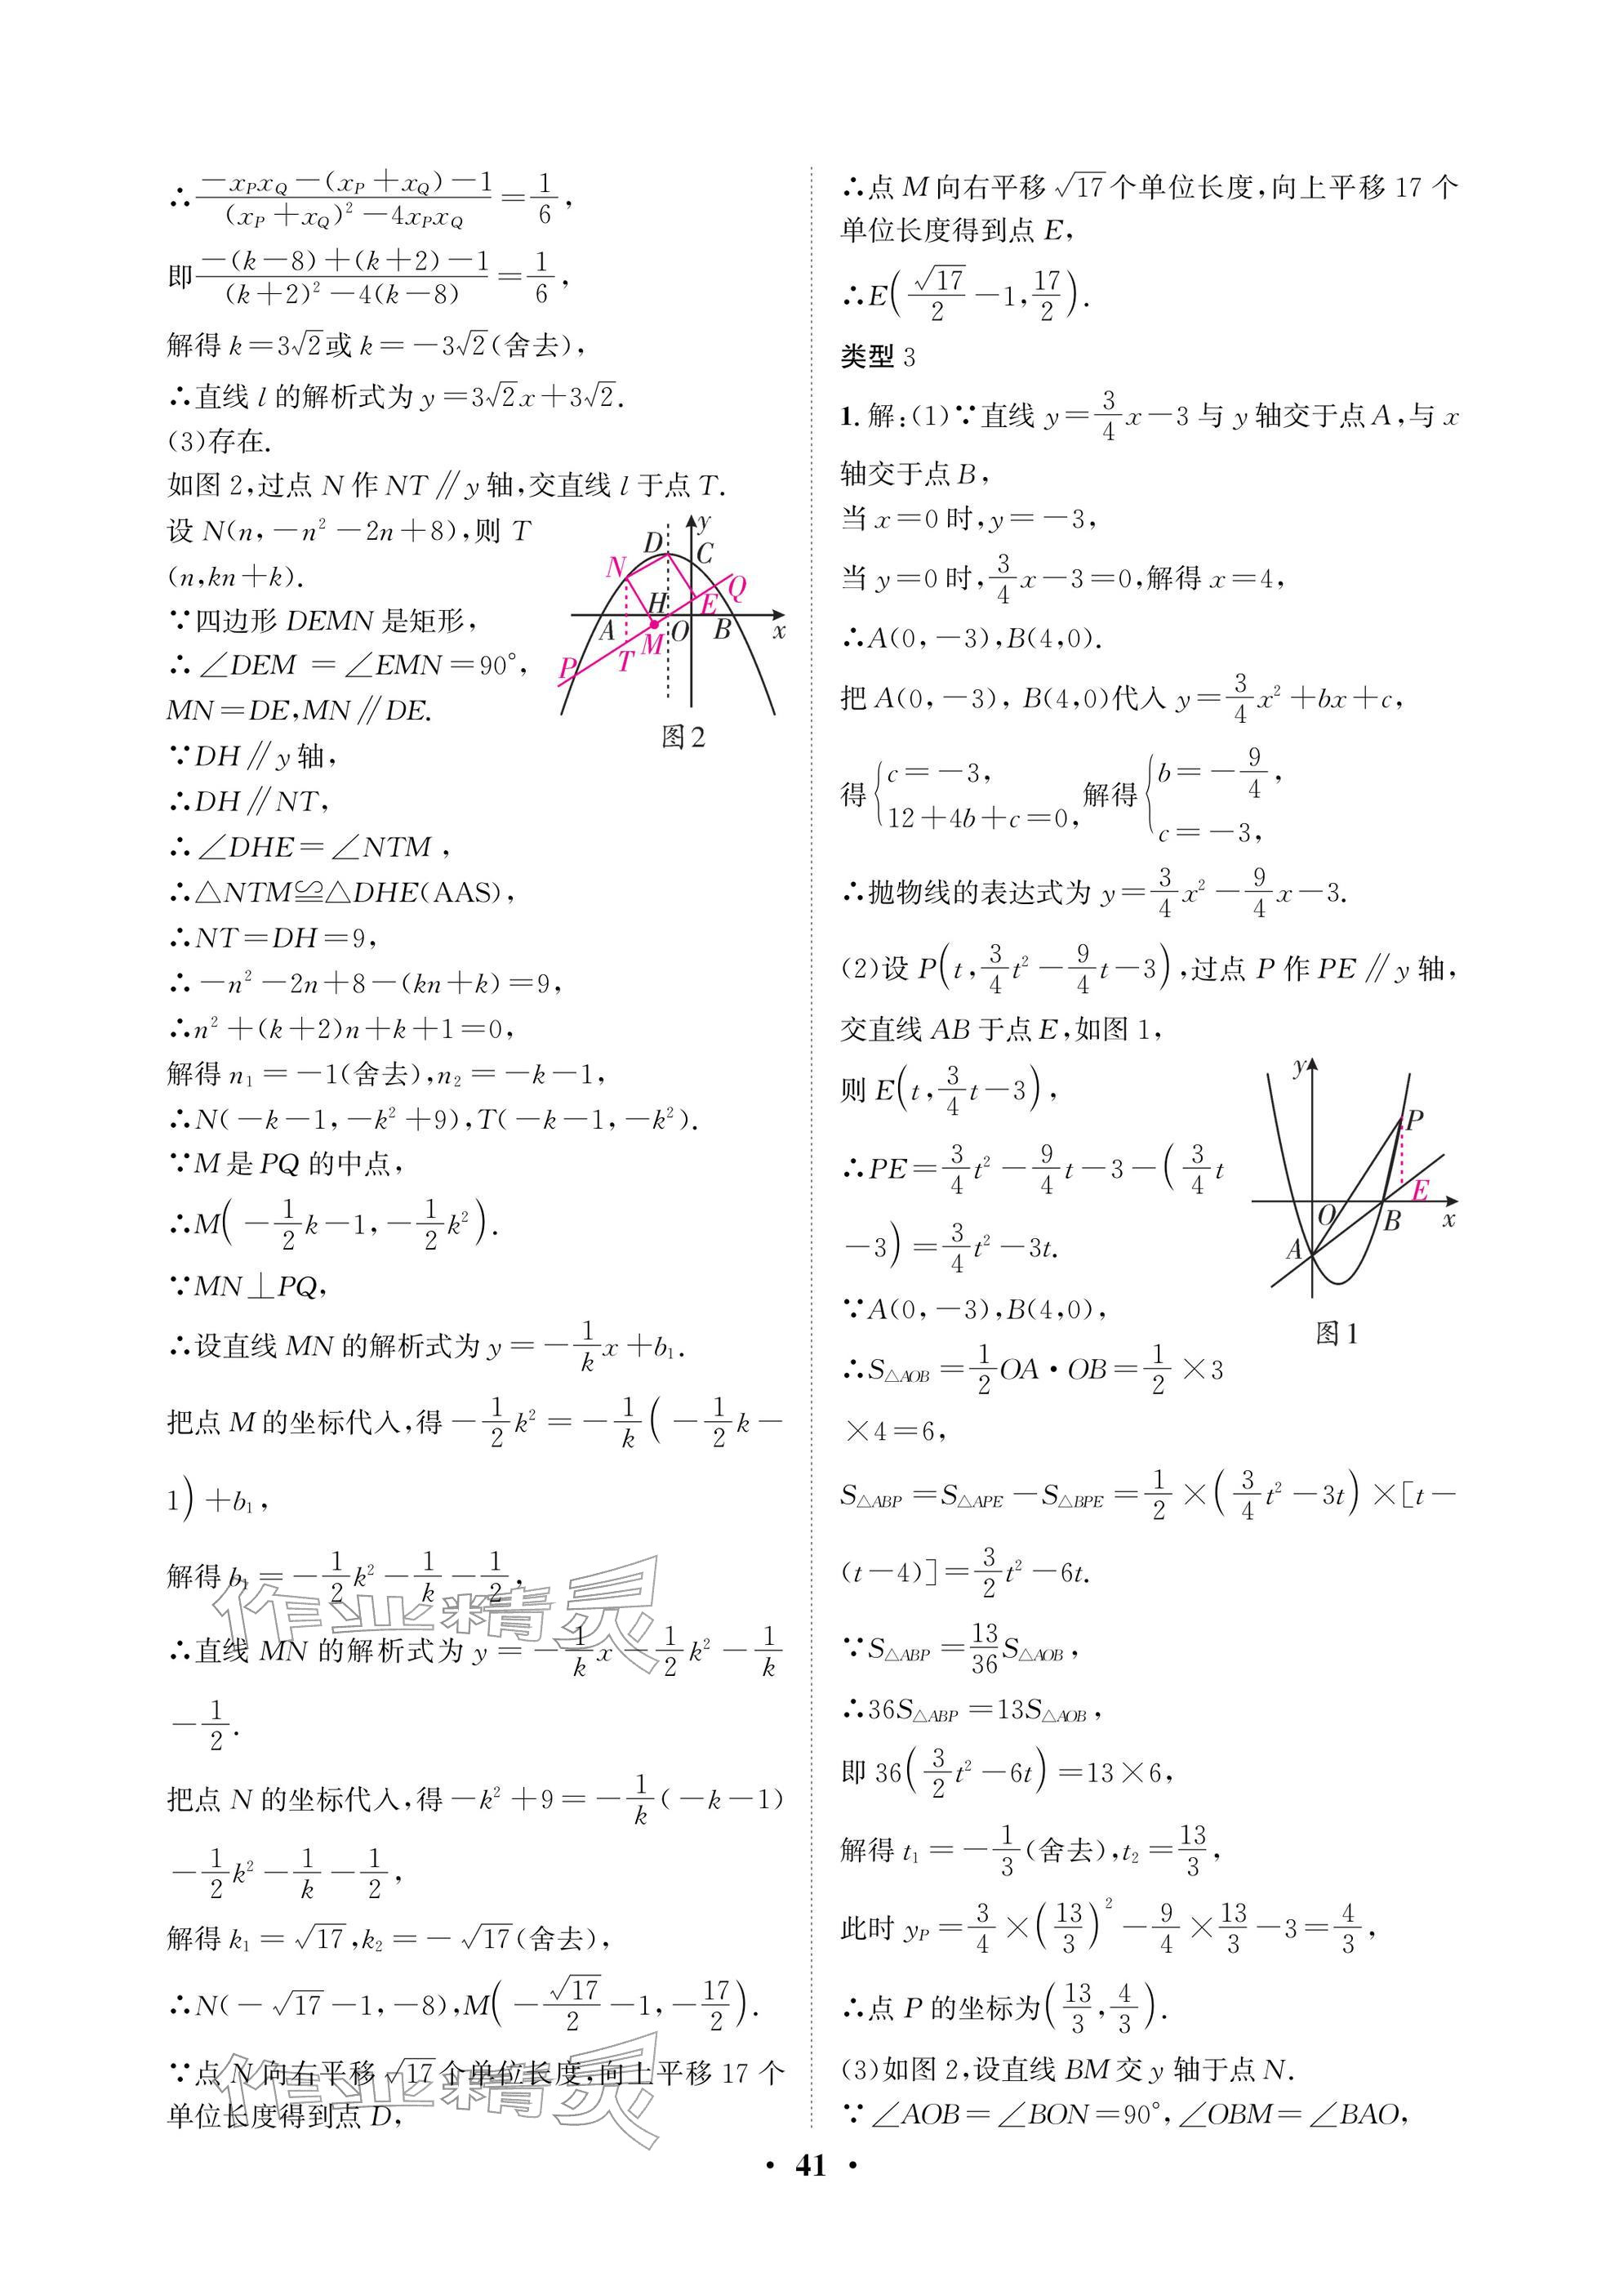 ∴(−x_P x_Q−(x_P+x_Q)−1)/((x_P+x_Q)²−4x_P x_Q)=1/6,
即(−(k−8)+(k+2)−1)/((k+2)²−4(k−8))=1/6,
解得 k=3√2或 k=−3√2(舍去),
∴直线 l 的解析式为 y=3√2x+3√2.
(3)存在.
如图 2,过点 N 作 NT∥y 轴,交直线 l 于点 T.
设 N(n,−n²−2n+8),则 T
(n,kn+k).
∵四边形 DEMN 是矩形,
∴∠DEM=∠EMN=90°,
MN=DE,MN∥DE.
∵DH∥y 轴,
∴DH∥NT,
∴∠DHE=∠NTM,
∴△NTM≌△DHE(AAS),
∴NT=DH=9,
∴−n²−2n+8−(kn+k)=9,
∴n²+(k+2)n+k+1=0,
解得 n₁=−1(舍去),n₂=−k−1,
∴N(−k−1,−k²+9),T(−k−1,−k²).
∵M 是 PQ 的中点,
∴M(−1/2k−1,−1/2k²).
∵MN⊥PQ,
∴设直线 MN 的解析式为 y=−1/k x+b₁.
把点 M 的坐标代入,得−1/2k²=−1/k(−1/2k−
1)+b₁,
解得 b₁=−1/2k²−1/k−1/2,
∴直线 MN 的解析式为 y=−1/k x−1/2k²−1/k
−1/2.
把点 N 的坐标代入,得−k²+9=−1/k(−k−1)
−1/2k²−1/k−1/2,
解得 k₁=√17,k₂=−√17(舍去),
∴N(−√17−1,−8),M(−√17/2−1,−17/2).
∵点 N 向右平移√17个单位长度,向上平移 17 个
单位长度得到点 D,
y
D
C
N
Q
H
E
A
M
O
B
x
P
T
图2
作业精灵
作业精灵
∴点 M 向右平移√17个单位长度,向上平移 17 个
单位长度得到点 E,
∴E(√17/2−1,17/2).
类型 3
1. 解:(1)∵直线 y=3/4x−3 与 y 轴交于点 A,与 x
轴交于点 B,
当 x=0 时,y=−3,
当 y=0 时,3/4x−3=0,解得 x=4,
∴A(0,−3),B(4,0).
把 A(0,−3),B(4,0)代入 y=3/4x²+bx+c,
得{c=−3, 12+4b+c=0,解得{b=−9/4, c=−3,
∴抛物线的表达式为 y=3/4x²−9/4x−3.
(2)设 P(t,3/4t²−9/4t−3),过点 P 作 PE∥y 轴,
交直线 AB 于点 E,如图 1,
则 E(t,3/4t−3),
∴PE=3/4t²−9/4t−3−(3/4t
−3)=3/4t²−3t.
∵A(0,−3),B(4,0),
∴S△AOB=1/2OA·OB=1/2×3
×4=6,
S△ABP=S△APE−S△BPE=1/2×(3/4t²−3t)×[t−
(t−4)]=3/2t²−6t.
∵S△ABP=13/36S△AOB,
∴36S△ABP=13S△AOB,
即 36(3/2t²−6t)=13×6,
解得 t₁=−1/3(舍去),t₂=13/3,
此时 y_P=3/4×(13/3)²−9/4×13/3−3=4/3,
∴点 P 的坐标为(13/3,4/3).
(3)如图 2,设直线 BM 交 y 轴于点 N.
∵∠AOB=∠BON=90°,∠OBM=∠BAO,
y
P
E
O
B
x
A
图1
• 41 •